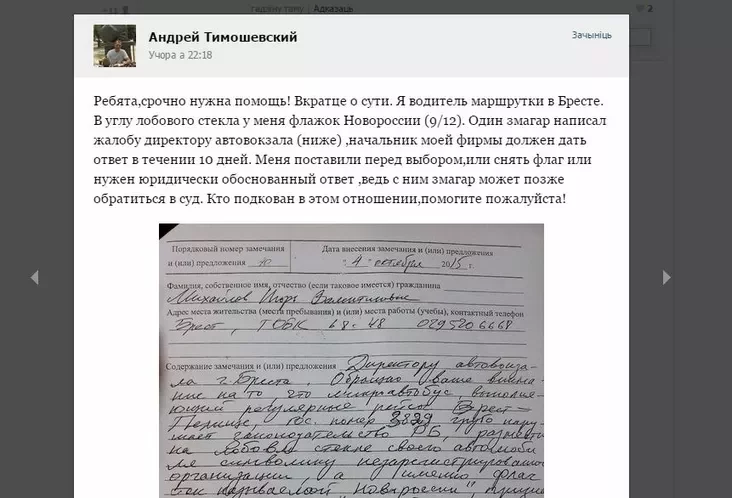 +11
гадзіну таму | Адказаць
2
Андрей Тимошевский
Учора а 22:18
Зачыніць
Ребята,срочно нужна помощь! Вкратце о сути. Я водитель маршрутки в Бресте.
В углу лобового стекла у меня флажок Новороссии (9/12). Один змагар написал
жалобу директору автовокзала (ниже) ,начальник моей фирмы должен дать
ответ в течении 10 дней. Меня поставили перед выбором,или снять флаг или
нужен юридически обоснованный ответ ,ведь с ним змагар может позже
обратиться в суд. Кто подкован в этом отношении,помогите пожалуйста!
Порядковый номер замечания
и (или) предложения
Дата внесения замечания и (или) предложения
"4" октября 2015 г.
Фамилия, собственное имя, отчество (если таковое имеется) гражданина
Михайлов Игорь Валентинович
Адрес места жительства (места пребывания) и (или) места работы (учебы), контактный телефон
Брест, ГОБК 68-48 029 520 6668
Содержание замечания и (или) предложения Директору автовокза-
ла г. Бреста. Обращаю Ваше внима-
ние на то, что микроавтобус, выполня-
ющий регулярные рейсы Брест –
гос. номер грубо нару-
шает законодательство РБ, разместив
на лобовом стекле своего автомоби-
ля символику незарегистрированной
организации, а именно флаг
так называемой "Новороссии",